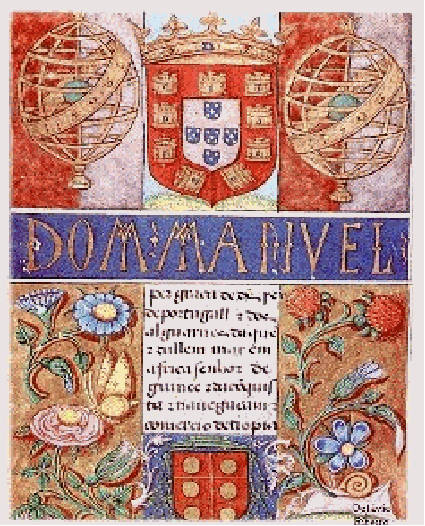 DOM:MANVEL
por graça de d̃s rei
de portugall z dos
alguarues daquē
z dallem mar em
africa senhor de
guinee z da cōquis
ta z naueguaçam z
comercio detiopia
Octavio